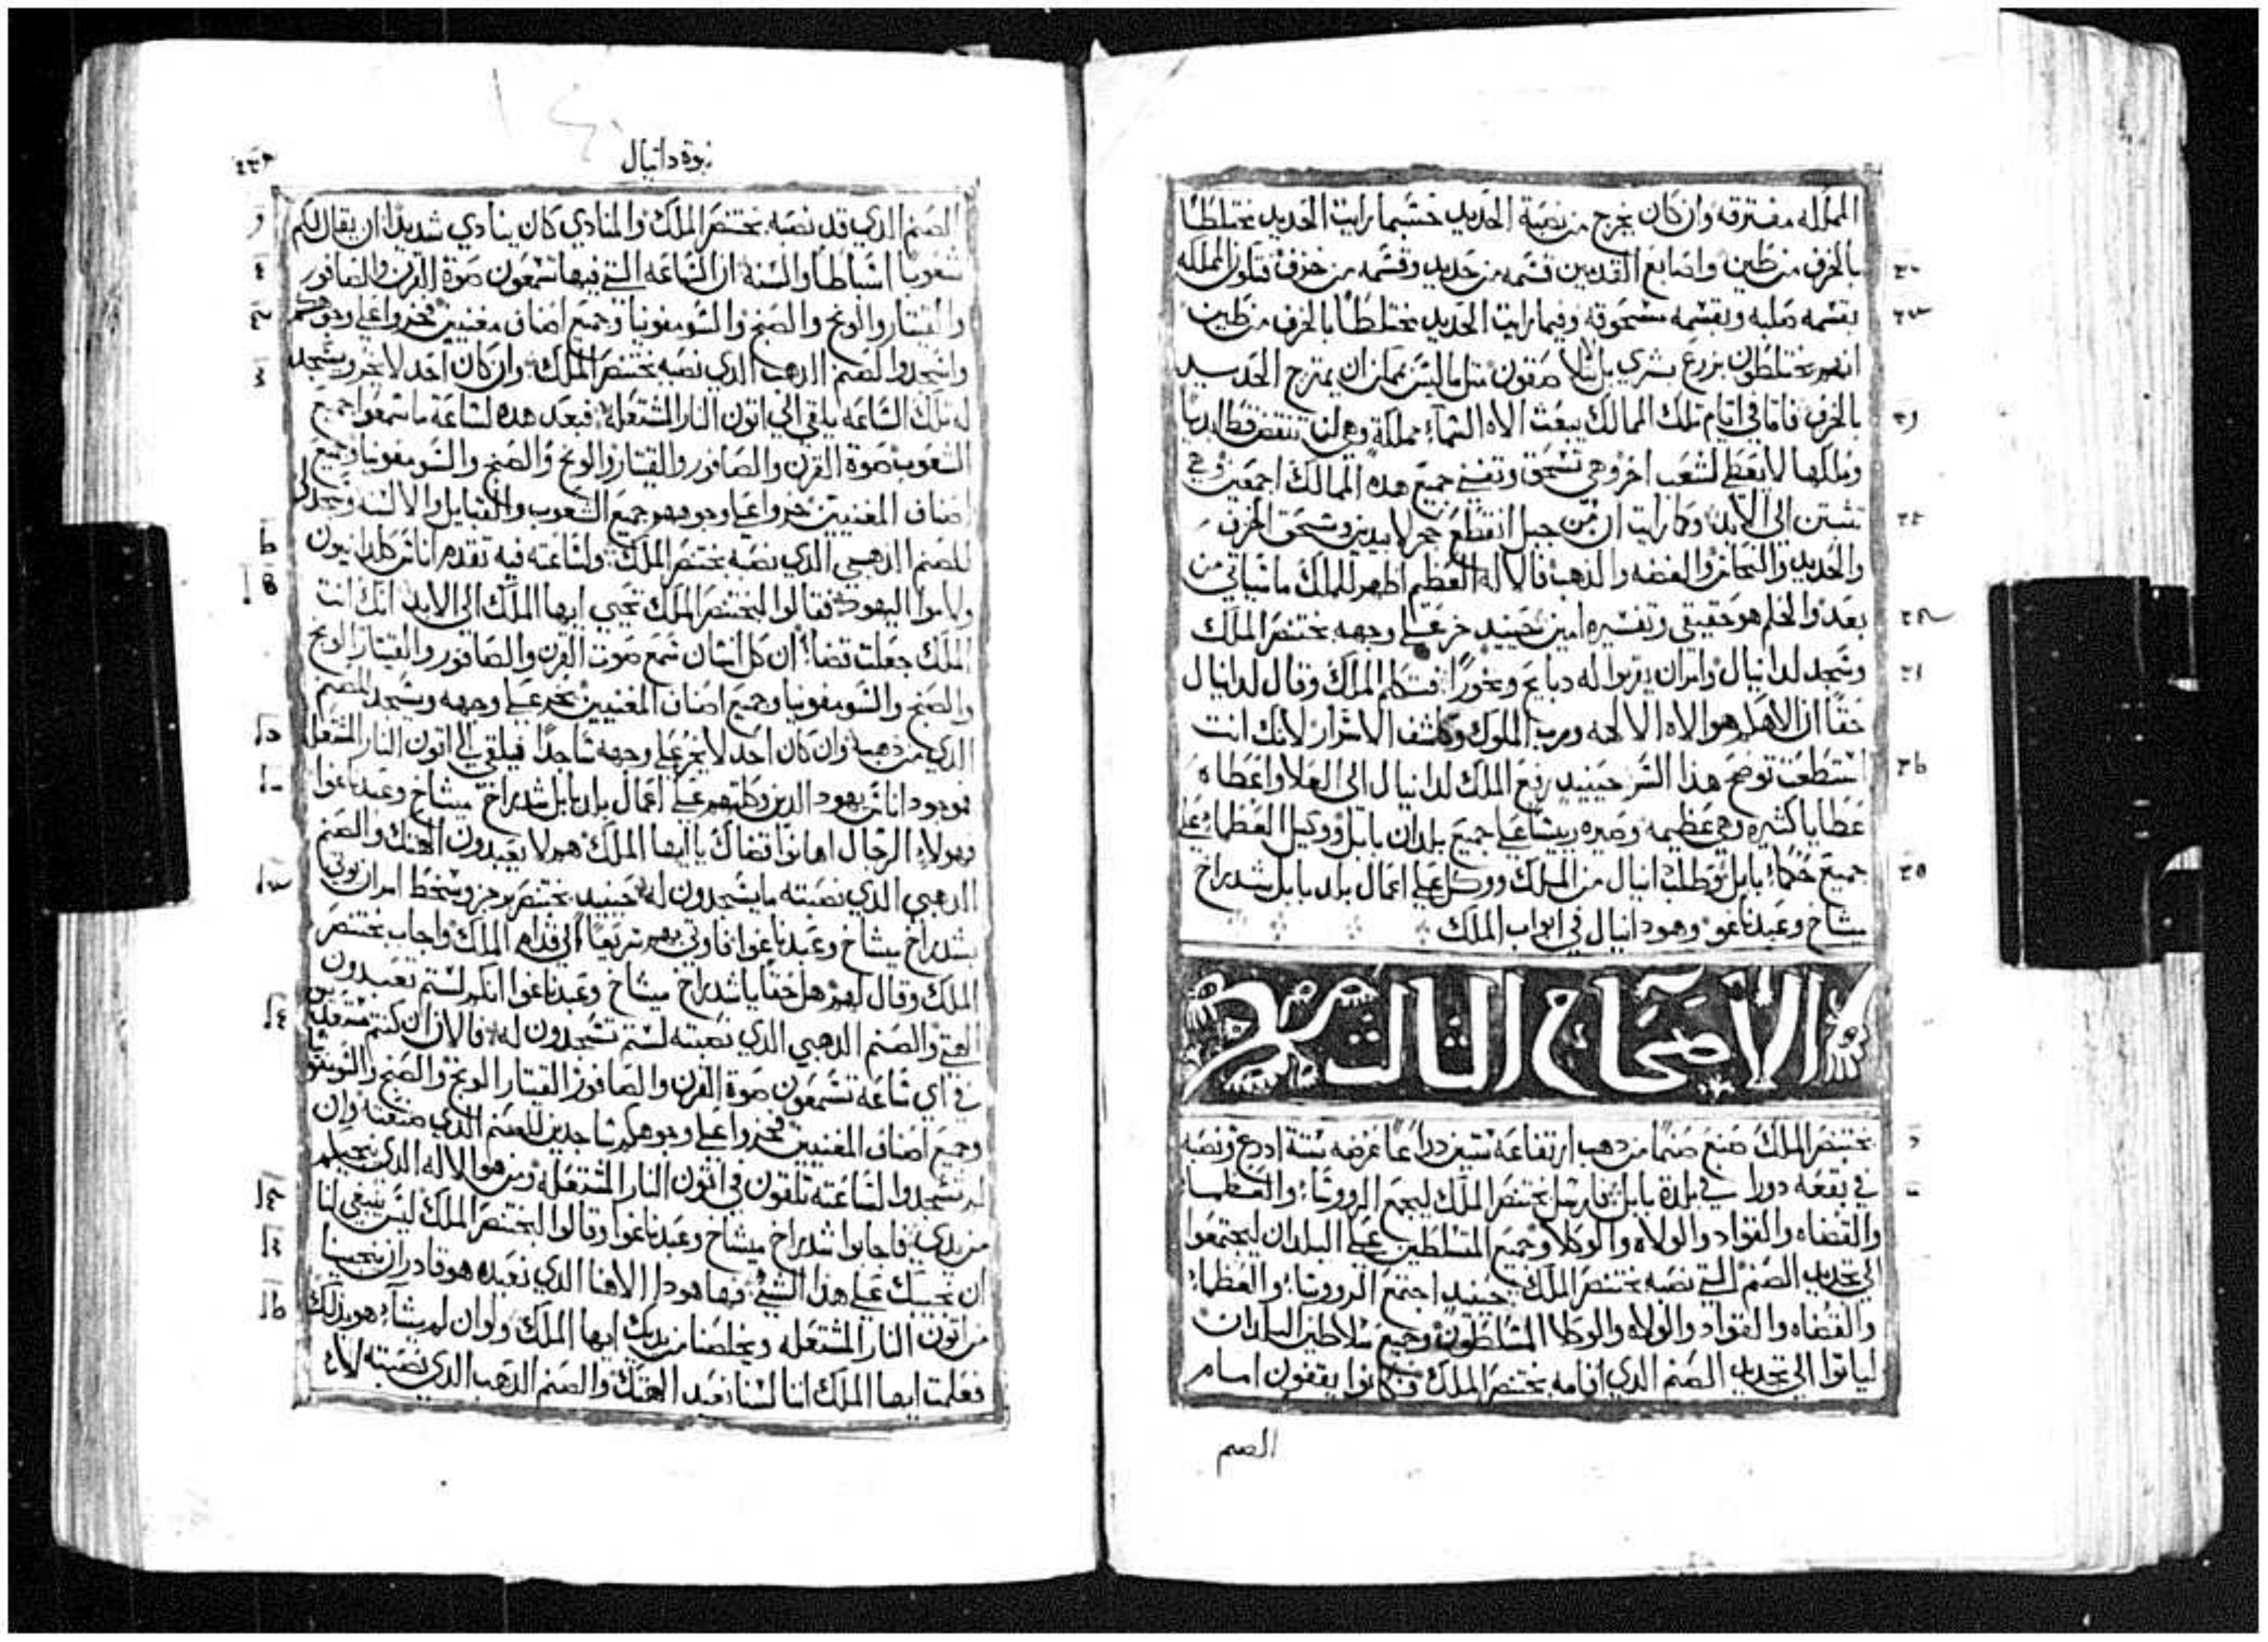 المملكه مفترقه وان كان يخرج من نصبة الحديد حسبما رايت الحديد مختلطًا
بالخزف من طين واصابع القدمين قسمه من حديد وقسمه من خزف فتلون المملكه
بقسمه صلبه وبقسمه مسحوقة وفيما رايت الحديد مختلطًا بالخزف من طين
انهم يختلطون بزرع بشري بل لا صقون مثلما ليس يمكن ان يمتزج الحديد
بالخزف فاما في ايام تلك الممالك يبعث الاه السماء مملكة وهي لن تنتقض قط ابديا
وملكها لا يعطى لشعب اخر وهي تسحق وتفني جميع هذه الممالك اجمعين وهي
تثبت الي الابد وكما رايت ان من جبل انقطع حجر لا بيدين وسحق الخزف
والحديد والنحاس والفضه والذهب فالاله العظيم اظهر للملك ما سياتي من
بعد والحلم هو حقيقي وتفسيره امين حينيد خر على وجهه بختنصر الملك
وسجد لدانيال وامر ان يقربوا له دبايح وبخورًا فتكلم الملك وقال لدانيال
حقًا ان الاهكم هو الاه الالهه ورب الملوك وكاشف الاسرار لانك انت
استطعت توضح هذا السر حينيد رفع الملك لدانيال الى العلا واعطاه
عطايا كثيره وهي عظيمه وصيره رييسًا على جميع بلدان بابل ووكيل العظماء على
جميع حكماء بابل وطلب دانيال من الملك ووكل على اعمال بلد بابل شدراخ
ميشاخ وعبدناغو وهو دانيال في ابواب الملك
الاصحاح الثالث
بختنصر الملك صنع صنمًا من دهب ارتفاعه ستين دراعًا عرضه ستة ادرع ونصبه
في بقعه دورا في بلدة بابل فارسل بختنصر الملك ليجمع الرووساء والعظماء
والقضاه والقواد والولاه والوكلا وجميع المتسلطين على البلدان ليجتمعوا
الي تجديد الصنم التي نصبه بختنصر الملك حينيد اجتمع الرووساء والعظماء
والقضاه والقواد والولاه والوكلا المتسلطون وجميع سلاطين البلدان
لياتوا الي تجديد الصنم الدي اقامه بختنصر الملك فكانوا يقفون امام
الصنم
نبوة دانيال
الصنم الدي قد نصبه بختنصر الملك والمنادي كان ينادي شديدًا ان يقال لكم
شعوبًا اسباطًا والسنة ان الساعه التي فيها تسمعون صوة القرن والصافور
والقيتار والونج والصنج والسومفونيا وجميع اصناف مغنيين فخروا على وجوهكم
واسجدوا لصنم الدهب الدي نصبه بختنصر الملك وان كان احد لا يخر ويسجد
له تلك الساعه يلقي الي اتون النار المشتعله فبعد هده الساعة ما سمعوا جميع
الشعوب صوة القرن والصافور والقيتار والونج والصنج والسومفونيا وجميع
اصناف المغنيين خروا على وجوههم جميع الشعوب والقبايل والالسنه وسجدوا
للصنم الدهبي الدي نصبه بختنصر الملك ولساعته فيه تقدم اناس كلدانيون
ولاموا اليهود فقالوا لبختنصر الملك تحيي ايها الملك الى الابد انك انت
الملك جعلت قضاء ان كل انسان سمع صوت القرن والصافور والقيتار الونج
والصنج والسومفونيا وجميع اصناف المغنيين يخر على وجهه ويسجد للصنم
الدي من دهب وان كان احد لا يخر على وجهه ساجدًا فيلقي الي اتون النار المشتعله
فموجود اناس يهود الدين وكلتهم على اعمال بلد بابل شدراخ ميشاخ وعبدناغوا
فهولاء الرجال اهانوا قضاك يا ايها الملك هم لا يعبدون الهتك والصنم
الدهبي الدي نصبته ما يسجدون له حينيد بختنصر برجز وسخط امر ان يوتي
بشدراخ ميشاخ وعبدناغوا فاوتي بهم سريعًا الي قدام الملك واجاب بختنصر
الملك وقال لهم هل حقًا يا شدراخ ميشاخ وعبدناغوا انكم لستم تعبدون
الهتي والصنم الدهبي الدي نصبته لستم تسجدون له فالان ان كنتم مستعدين
في اي ساعه تسمعون صوة القرن والصافور القيتار الونج والصنج والسومفونيا
وجميع اصناف المغنيين فخروا على وجوهكم ساجدين للصنم الدي صنعته وان
لم تسجدوا لساعته تلقون في اتون النار المشتعله ومن هو الاله الدي ينجيكم
من يدي فاجابوا شدراخ ميشاخ وعبدناغوا وقالوا لبختنصر الملك ليس ينبغي لنا
ان نجيبك على هدا الشي فها هودا الاهنا الدي نعبده هو قادر ان ينجينا
من اتون النار المشتعله ويخلصنا من يديك ايها الملك ولو ان لم يشاء هو بدلك
فعلمت ايها الملك اننا لسنا نعبد الهتك والصنم الدهب الدي نصبته